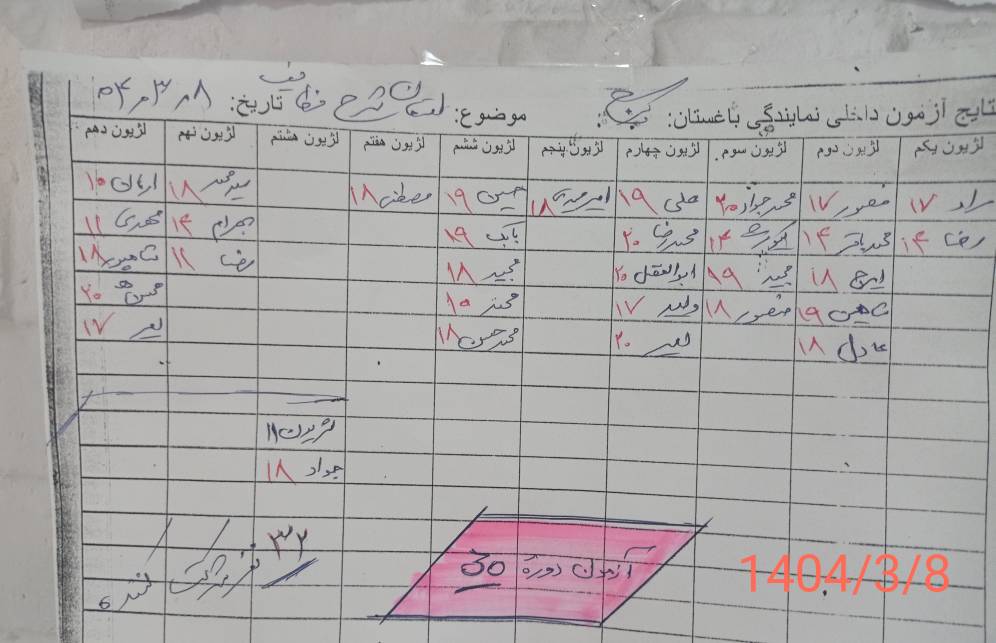 نتایج آزمون داخلی نمایندگی باغستان: کرج موضوع: امتحان شرح وظایف تاریخ: ۰۴٫۳٫۸
لژیون یکم لژیون دوم لژیون سوم لژیون چهارم لژیون پنجم لژیون ششم لژیون هفتم لژیون هشتم لژیون نهم لژیون دهم
راد ۱۷ منصور ۱۷ محمدجواد ۲۰ علی ۱۹ ۱۸ حسین ۱۹ مصطفی ۱۸ سیدمحمد ۱۸
رضا ۱۴ محمدباقر ۱۴ ۱۴ محمدرضا ۲۰ بابک ۱۹ بهرام ۱۴ مهدی
ایرج ۱۸ مجید ۱۹ ابوالفضل ۲۰ مجید ۱۸ رضا ۱۸
شاهین ۱۹ منصور ۱۸ ولید ۱۷ ۱۵ محسن ۲۰
عادل ۱۸ ۲۰ محمدحسن ۱۸ ۱۷
لژیون ۱۱
جواد ۱۸
۳۲ نفر شرکت کننده
آزمون دوره 30
1404/3/8